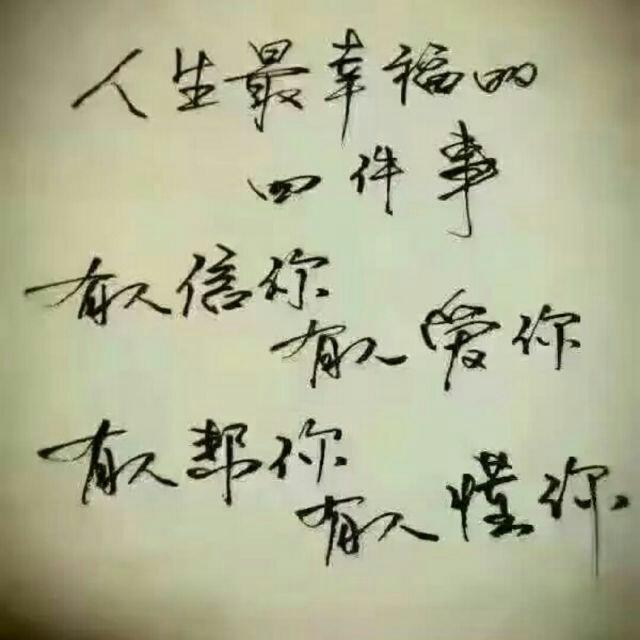 人生最幸福的
四件事
有人信你
有人爱你
有人帮你
有人懂你